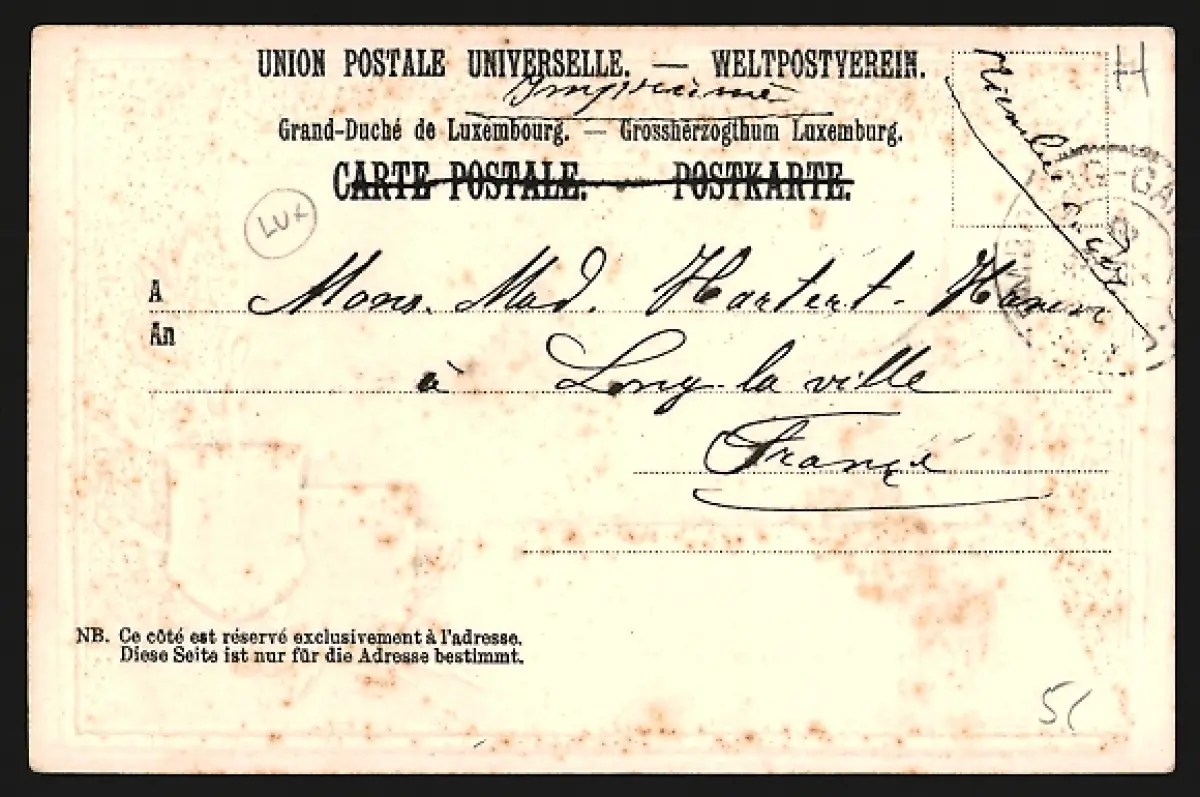 UNION POSTALE UNIVERSELLE. — WELTPOSTVEREIN.
Imprimé
Grand-Duché de Luxembourg. — Grossherzogthum Luxemburg.
CARTE POSTALE. — POSTKARTE.
H
LUX
A Mons. Mad. Hartert-
An
à Longlaville
France
NB. Ce côté est réservé exclusivement à l'adresse.
Diese Seite ist nur für die Adresse bestimmt.